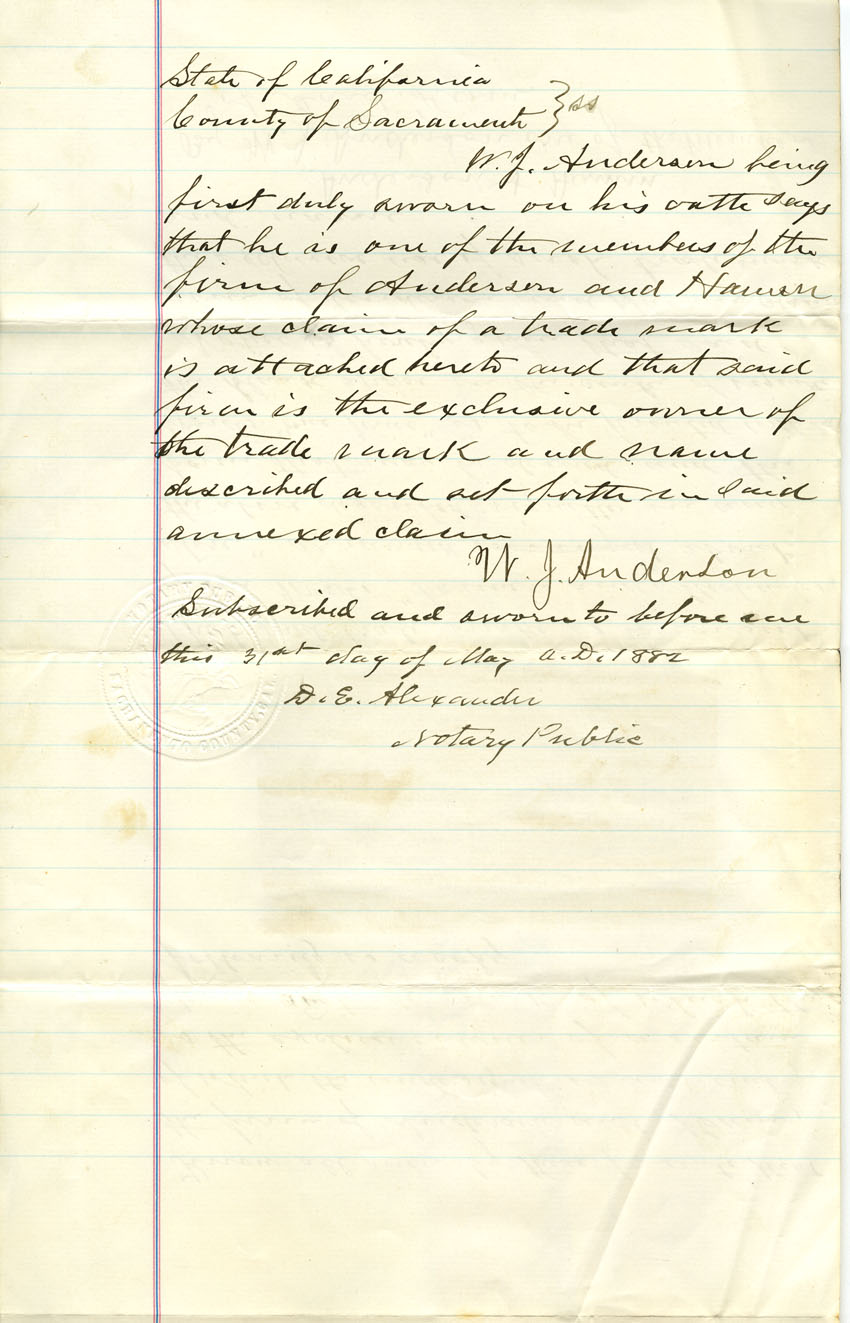 State of California
County of Sacramento } ss
W. J. Anderson being
first duly sworn on his oath says
that he is one of the members of the
firm of Anderson and
whose claim of a trade mark
is attached hereto and that said
firm is the exclusive owner of
the trade mark and name
described and set forth in said
annexed claim
W. J. Anderson
Subscribed and sworn to before me
this 31st day of May A.D. 1882
D. E. Alexander
Notary Public